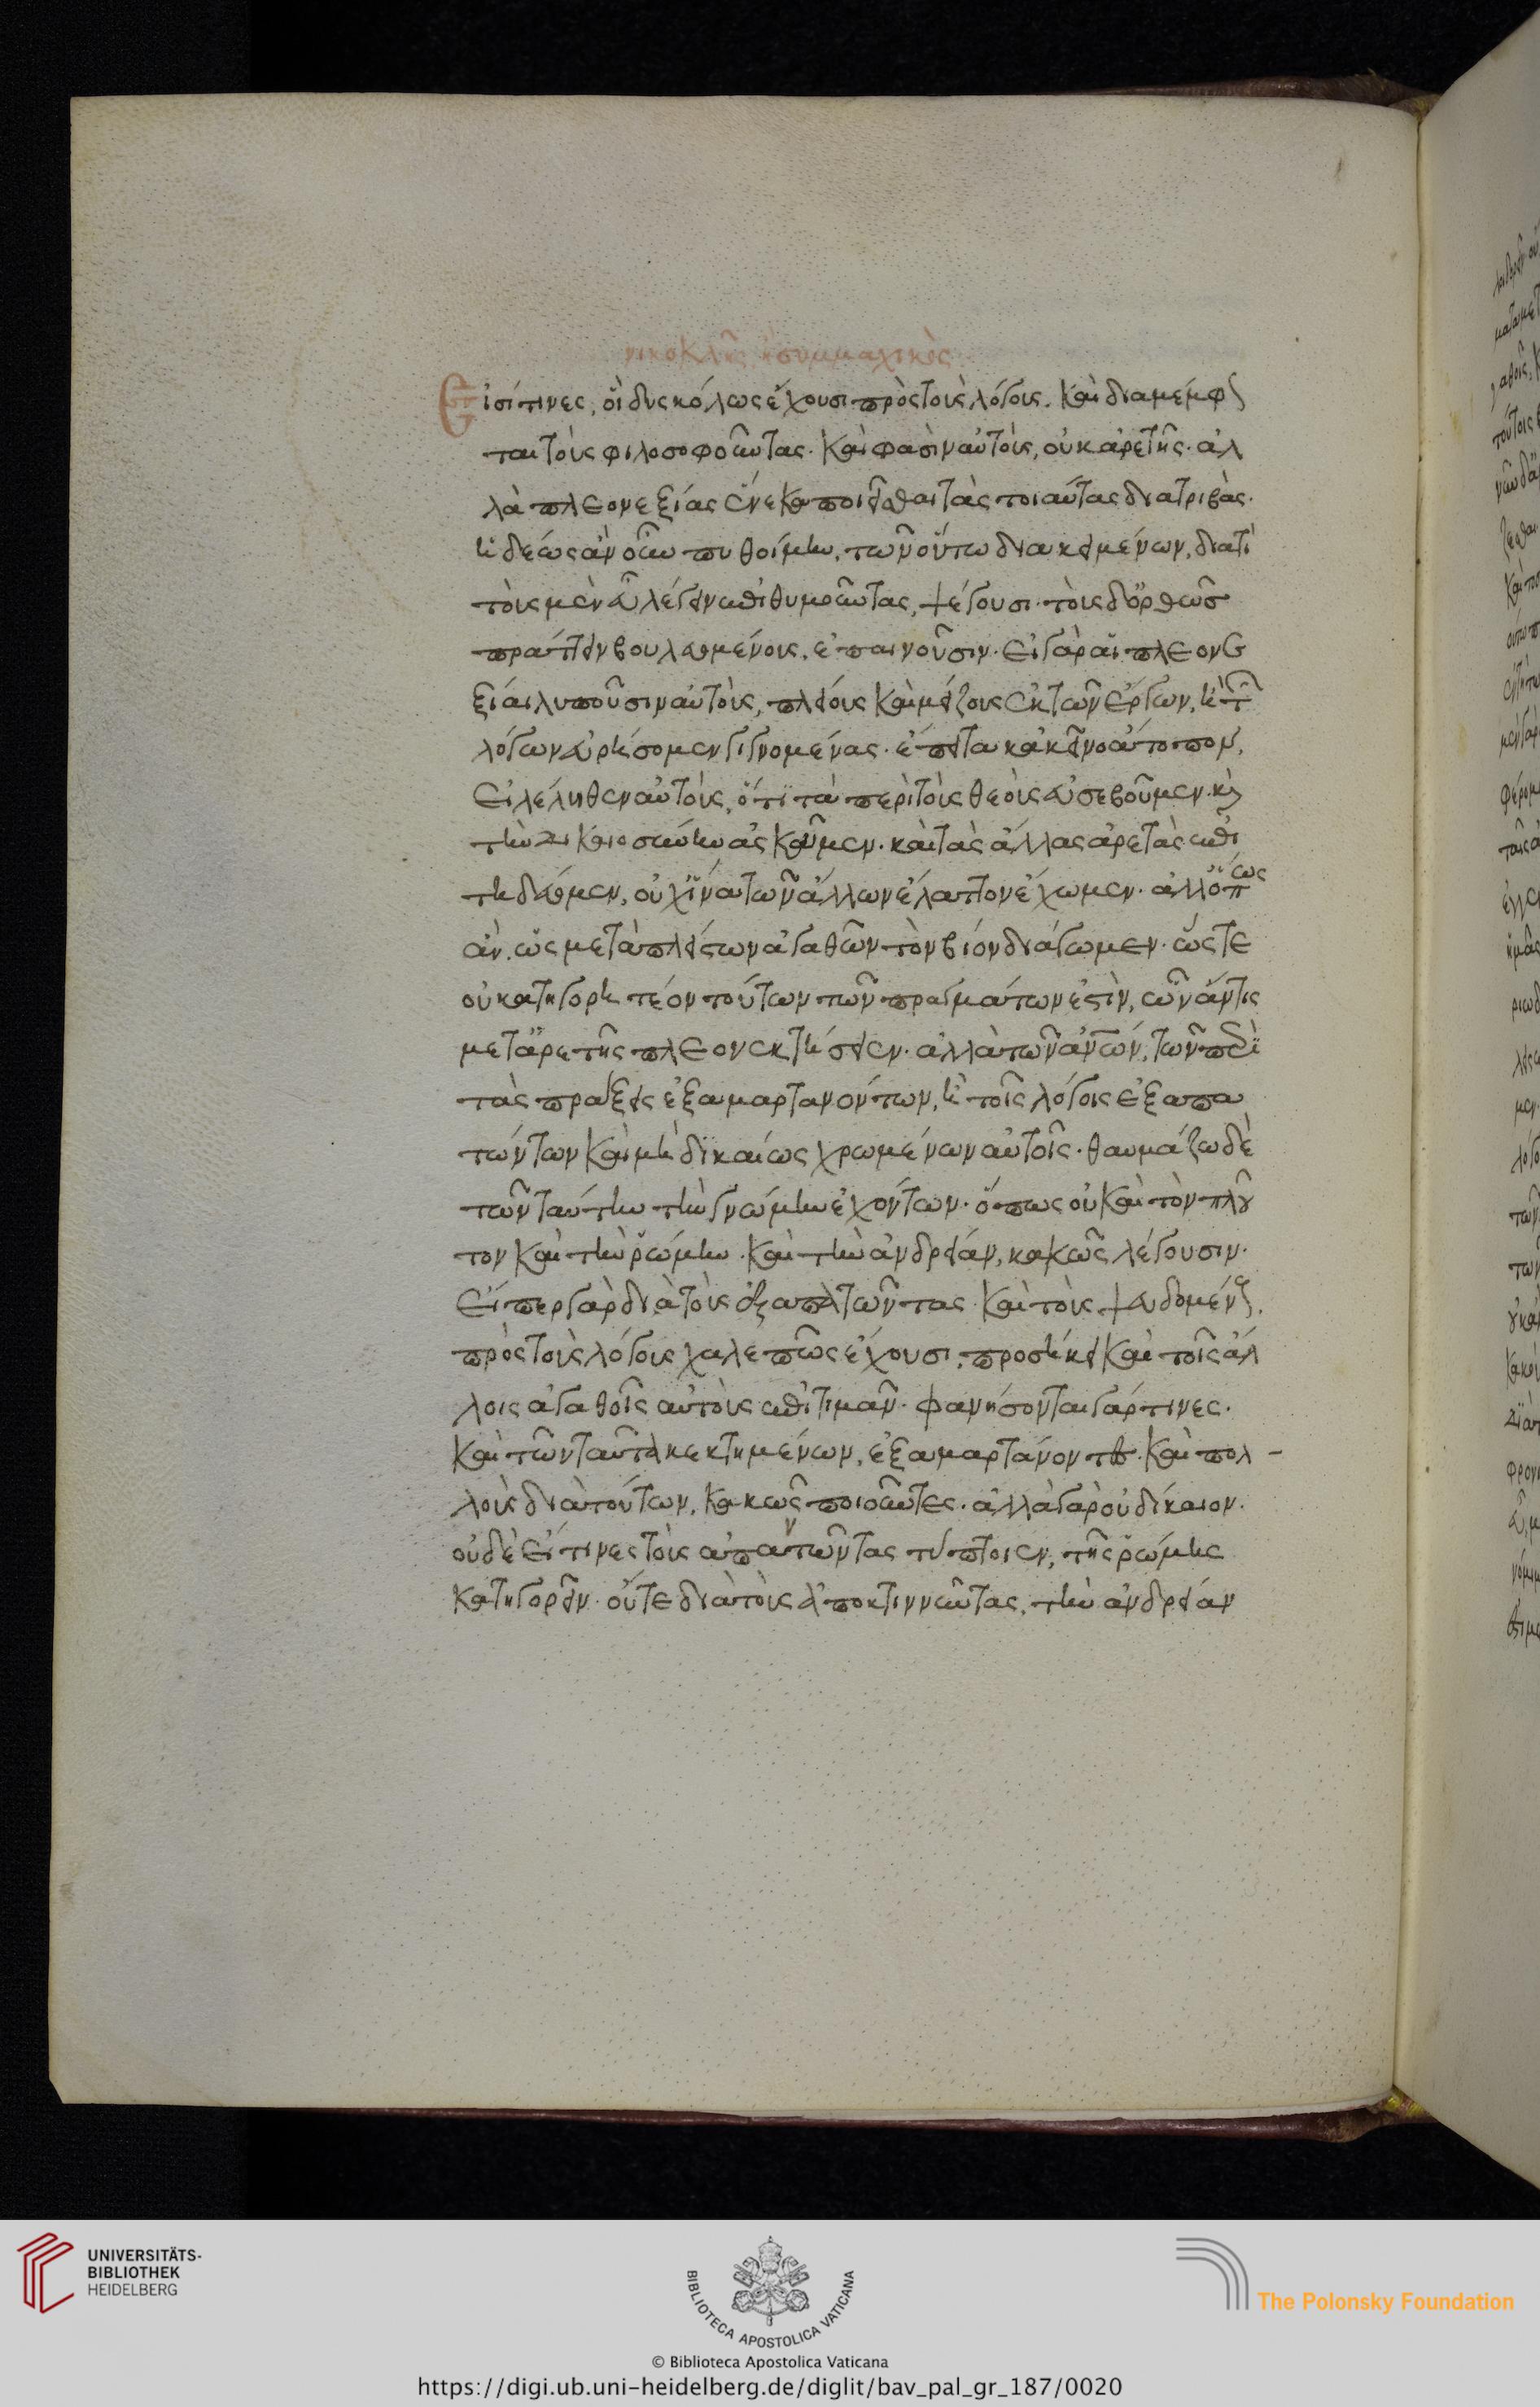 νικοκλῆς ἢ συμμαχικὸς
Εἰσί τινες, οἳ δυςκόλως ἔχουσι πρὸς τοὺς λόγους. καὶ διαμέμφον
ται τοὺς φιλοσοφοῦντας. καὶ φασὶν αὐτοὺς, οὐκ ἀρετῆς. ἀλ
λὰ πλεονεξίας ἕνεκα ποιεῖσθαι τὰς τοιαύτας διατριβάς.
ἡδέως ἂν οὖν πυθοίμην, τῶν οὕτω διακειμένων, διατί
τοὺς μὲν εὖ λέγειν ἐπιθυμοῦντας, ψέγουσι. τοὺς δ' ὀρθῶς
πράττειν βουλομένους, ἐπαινοῦσιν. εἰ γὰρ αἱ πλεονε
ξίαι λυποῦσιν αὐτοὺς, πλείους καὶ μείζους ἐκ τῶν ἔργων, ἢ τῶν
λόγων εὑρήσομεν γιγνομένας. ἔπειτα κἀκεῖνο ἄτοπον,
εἰ λέληθεν αὐτοὺς, ὅτι τὰ περὶ τοὺς θεοὺς εὐσεβοῦμεν. καὶ
τὴν δικαιοσύνην ἀσκοῦμεν. καὶ τὰς ἄλλας ἀρετὰς ἐπι
τηδεύομεν, οὐχ ἵνα τῶν ἄλλων ἔλαττον ἔχωμεν. ἀλλ' ὅπως
ἂν. ὡς μετὰ πλείστων ἀγαθῶν τὸν βίον διάγωμεν. ὥςτε
οὐ κατηγορητέον τούτων τῶν πραγμάτων ἐστὶν, ὧν ἄν τις
μετ' ἀρετῆς πλεονεκτήσειεν. ἀλλὰ τῶν ἀνθρώπων, τῶν περὶ
τὰς πράξεις ἐξαμαρτανόντων, ἢ τοῖς λόγοις ἐξαπα
τώντων καὶ μὴ δικαίως χρωμένων αὐτοῖς. θαυμάζω δὲ
τῶν ταύτην τὴν γνώμην ἐχόντων. ὅπως οὐ καὶ τὸν πλοῦ
τον καὶ τὴν ῥώμην. καὶ τὴν ἀνδρείαν, κακῶς λέγουσιν.
εἴπερ γὰρ διὰ τοὺς ἐξαπατῶντας καὶ τοὺς ψευδομένους,
πρὸς τοὺς λόγους χαλεπῶς ἔχουσι, προσήκει καὶ τοῖς ἄλ
λοις ἀγαθοῖς αὐτοὺς ἐπιτιμᾶν. φανήσονται γάρ τινες.
καὶ τῶν ταῦτα κεκτημένων, ἐξαμαρτάνοντες. καὶ πολ
λοὺς διὰ τούτων, κακῶς ποιοῦντες. ἀλλὰ γὰρ οὐ δίκαιον.
οὐδὲ εἴ τινες τοὺς ἀπαντῶντας τύπτοιεν, τῆς ῥώμης
κατηγορεῖν. οὔτε διὰ τοὺς ἀποκτιννῦντας, τὴν ἀνδρείαν
UNIVERSITÄTS-
BIBLIOTHEK
HEIDELBERG
BIBLIOTECA APOSTOLICA VATICANA
The Polonsky Foundation
© Biblioteca Apostolica Vaticana
https://digi.ub.uni-heidelberg.de/diglit/bav_pal_gr_187/0020